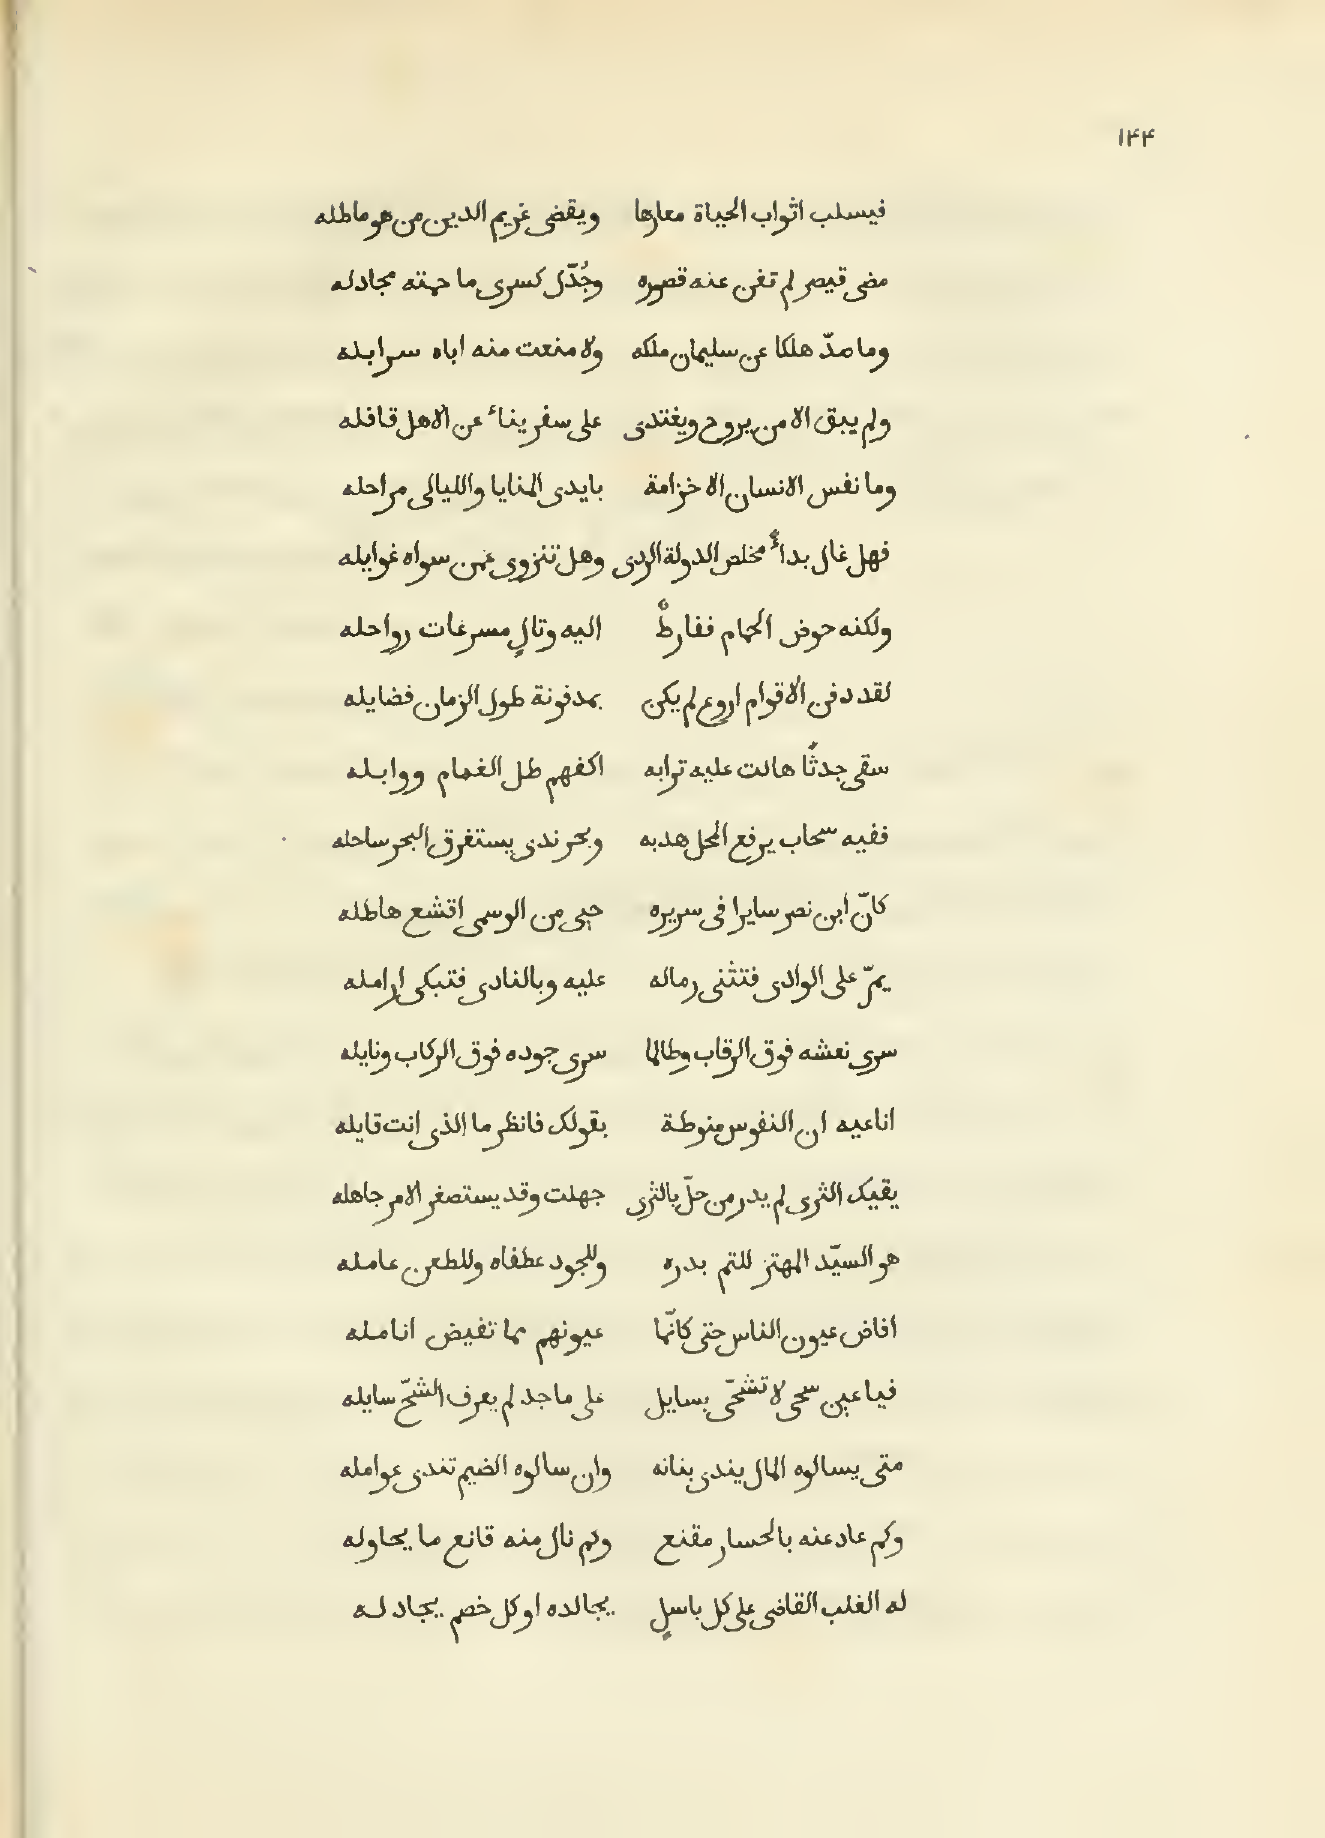 ١٤٤
فيسلب اثواب الحياة معارها ويقضى غريم الدين من هو ماطله
مضى قيصر لم تغن عنه قصوره وجُدّل كسرى ما حمته مجادله
وما صدّ هلكا عن سليمان ملكه ولا منعت منه اباه سرابله
ولم يبق الا من يروح ويغتدى على سفر يناء عن الاهل قافله
وما نفس الانسان الا خزامة بايدى المنايا والليالى مراحله
فهل غال بداءً مخلص الدولة الردى وهل تنزوى عمن سواه غوايله
ولكنه حوض الحمام ففارطٌ اليه وتالٍ مسرعات رواحله
لقد دفن الاقوام اروع لم يكن بمدفونة طول الزمان فضايله
سقى جدثًا هالت عليه ترابه اكفهم طل الغمام ووابله
ففيه سحاب يرفع المحل هدبه وبحر ندى يستغرق البحر ساحله
كانّ ابن نصر سايرا فى سريره حبى من الوسمى اقشع هاطله
يمرّ على الوادى فتثنى رماله عليه وبالنادى فتبكى ارامله
سرى نعشه فوق الرقاب وطالما سرى جوده فوق الركاب ونايله
اناعيه ان النفوس منوطة بقولك فانظر ما الذى انت قايله
يفيك الثرى لم يدر من حلّ بالثرى جهلت وقد يستصغر الامر جاهله
هو السيّد المهتز للتم بدره وللجود عطفاه وللطعن عامله
افاض عيون الناس حتى كانّما عيونهم مما تفيض انامله
فيا عين سحى لا تشحّى بسايل على ماجد لم يعرف الشحّ سايله
متى يسالوه المال يندى بنانه وان سالوه الضيم تندى عوامله
وكم عاد عنه بالخسار مقنع وكم نال منه قانع ما يحاوله
له الغلب القاضى على كل باسلٍ يجالده او كل خصم يجادله